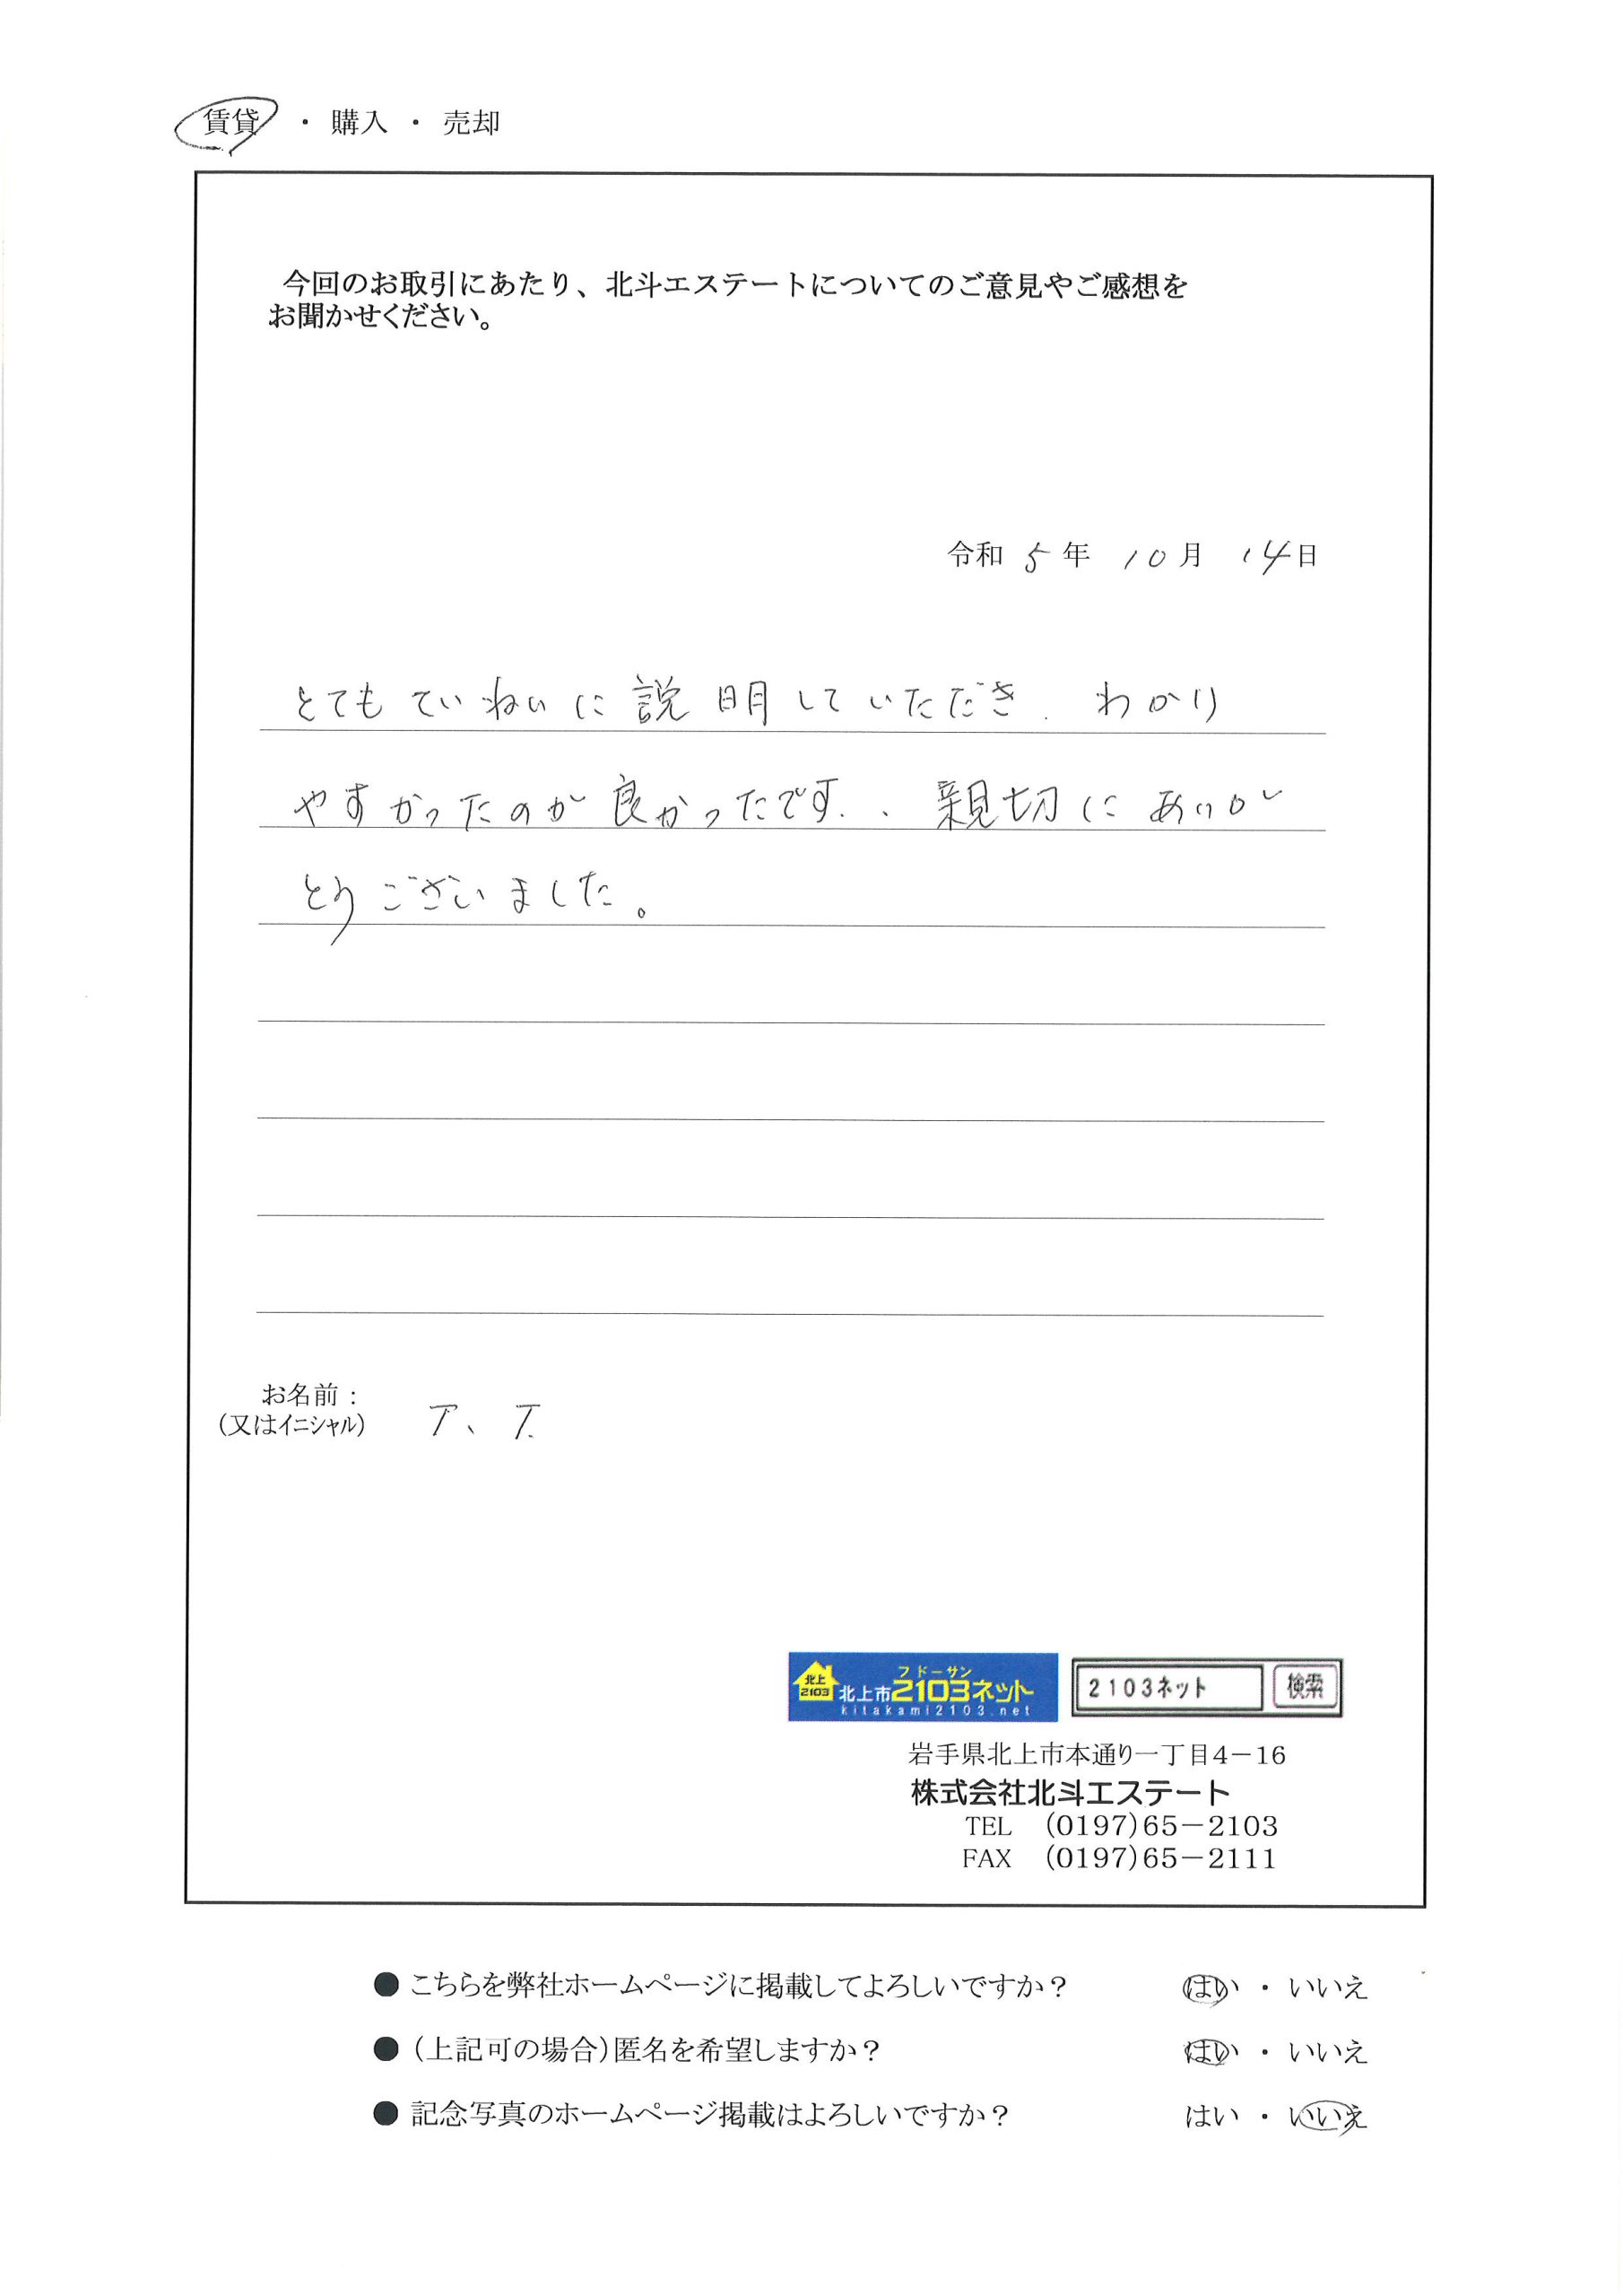 賃貸 ・ 購入 ・ 売却
今回のお取引にあたり、北斗エステートについてのご意見やご感想を
お聞かせください。
令和 5 年 10 月 14 日
とてもていねいに説明していただき、わかり
やすかったのが良かったです。、親切にありが
とうございました。
お名前:
(又はイニシャル) T、T.
北上
2103
フドーサン
北上市2103ネット
kitakami2103.net
2103ネット 検索
岩手県北上市本通り一丁目4-16
株式会社北斗エステート
TEL (0197)65-2103
FAX (0197)65-2111
● こちらを弊社ホームページに掲載してよろしいですか? はい ・ いいえ
● (上記可の場合)匿名を希望しますか? はい ・ いいえ
● 記念写真のホームページ掲載はよろしいですか? はい ・ いいえ